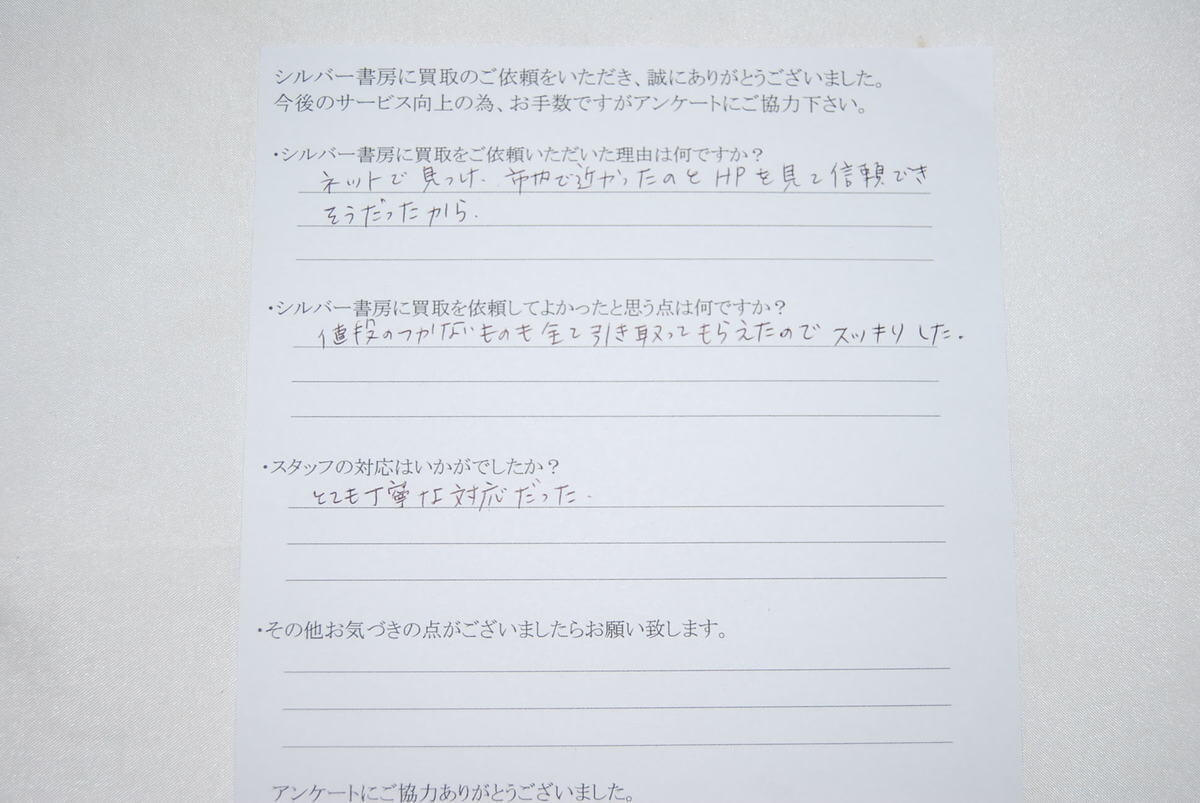 シルバー書房に買取のご依頼をいただき、誠にありがとうございました。
今後のサービス向上の為、お手数ですがアンケートにご協力下さい。
・シルバー書房に買取をご依頼いただいた理由は何ですか？
ネットで見つけ、市内で近かったのとHPを見て信頼でき
そうだったから。
・シルバー書房に買取を依頼してよかったと思う点は何ですか？
値段のつかないものも全て引き取ってもらえたのでスッキリした。
・スタッフの対応はいかがでしたか？
とても丁寧な対応だった。
・その他お気づきの点がございましたらお願い致します。
アンケートにご協力ありがとうございました。